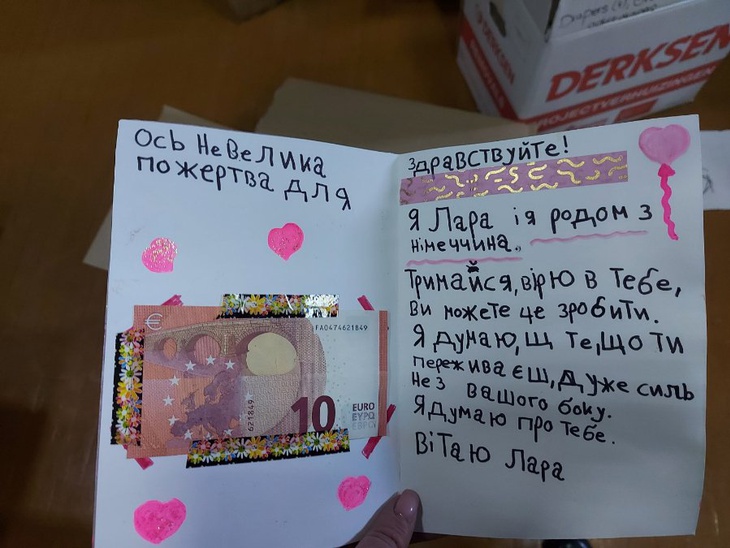 Diapers
DERKSEN
DERKSEN
PROJECTVERHUIZINGEN
Ось Невелика
пожертва для
€
FA0474621849
621849
10
EURO
ΕΥΡΩ
ЕВРО
Здравствуйте!
Я Лара і я родом з
німеччина.
Тримайся, вірю в тебе,
ви можете це зробити.
Я думаю, щ те, що ти
переживаєш, дуже силь
не з вашого боку.
Я думаю про тебе.
Вітаю Лара